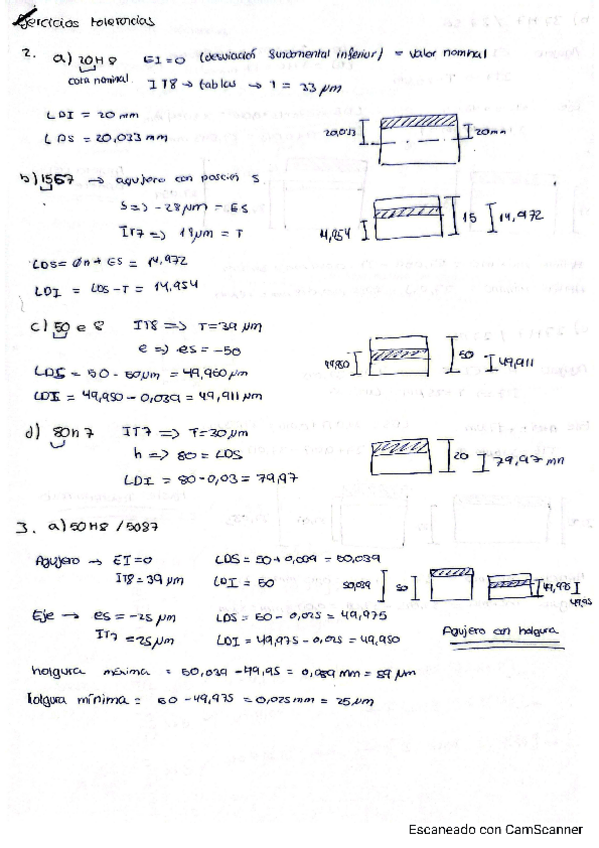 Ejercicios tolerancias
2. a) 20H8 EI=0 (desviación fundamental inferior) = valor nominal
cota nominal IT8 → tablas → T = 33 μm
LDI = 20 mm
LDS = 20,033 mm
20,033 20mm
b) 15S7 → agujero con posición s
s => -28μm = ES
IT7 => 18μm = T
LDS = ØN + ES = 14,972
LDI = LDS - T = 14,954
14,954 15 14,972
c) 50 e 8 IT8 => T = 39 μm
e => es = -50
LDS = 50 - 50μm = 49,950 μm
LDI = 49,950 - 0,039 = 49,911 μm
50 49,911
d) 80h7 IT7 => T = 30μm
h => 80 = LDS
LDI = 80 - 0,03 = 79,97
20 79,97 mm
3. a) 50H8 / 50g7
Agujero → EI=0 LDS = 50 + 0,039 = 50,039
IT8 = 39 μm LDI = 50
50,039 50 49,975 49,95
Eje → es = -25 μm LDS = 50 - 0,025 = 49,975
IT7 = 25μm LDI = 49,975 - 0,025 = 49,950
Agujero con holgura
holgura máxima = 50,039 - 49,95 = 0,089 mm = 89 μm
holgura mínima = 50 - 49,975 = 0,025 mm = 25 μm
Escaneado con CamScanner